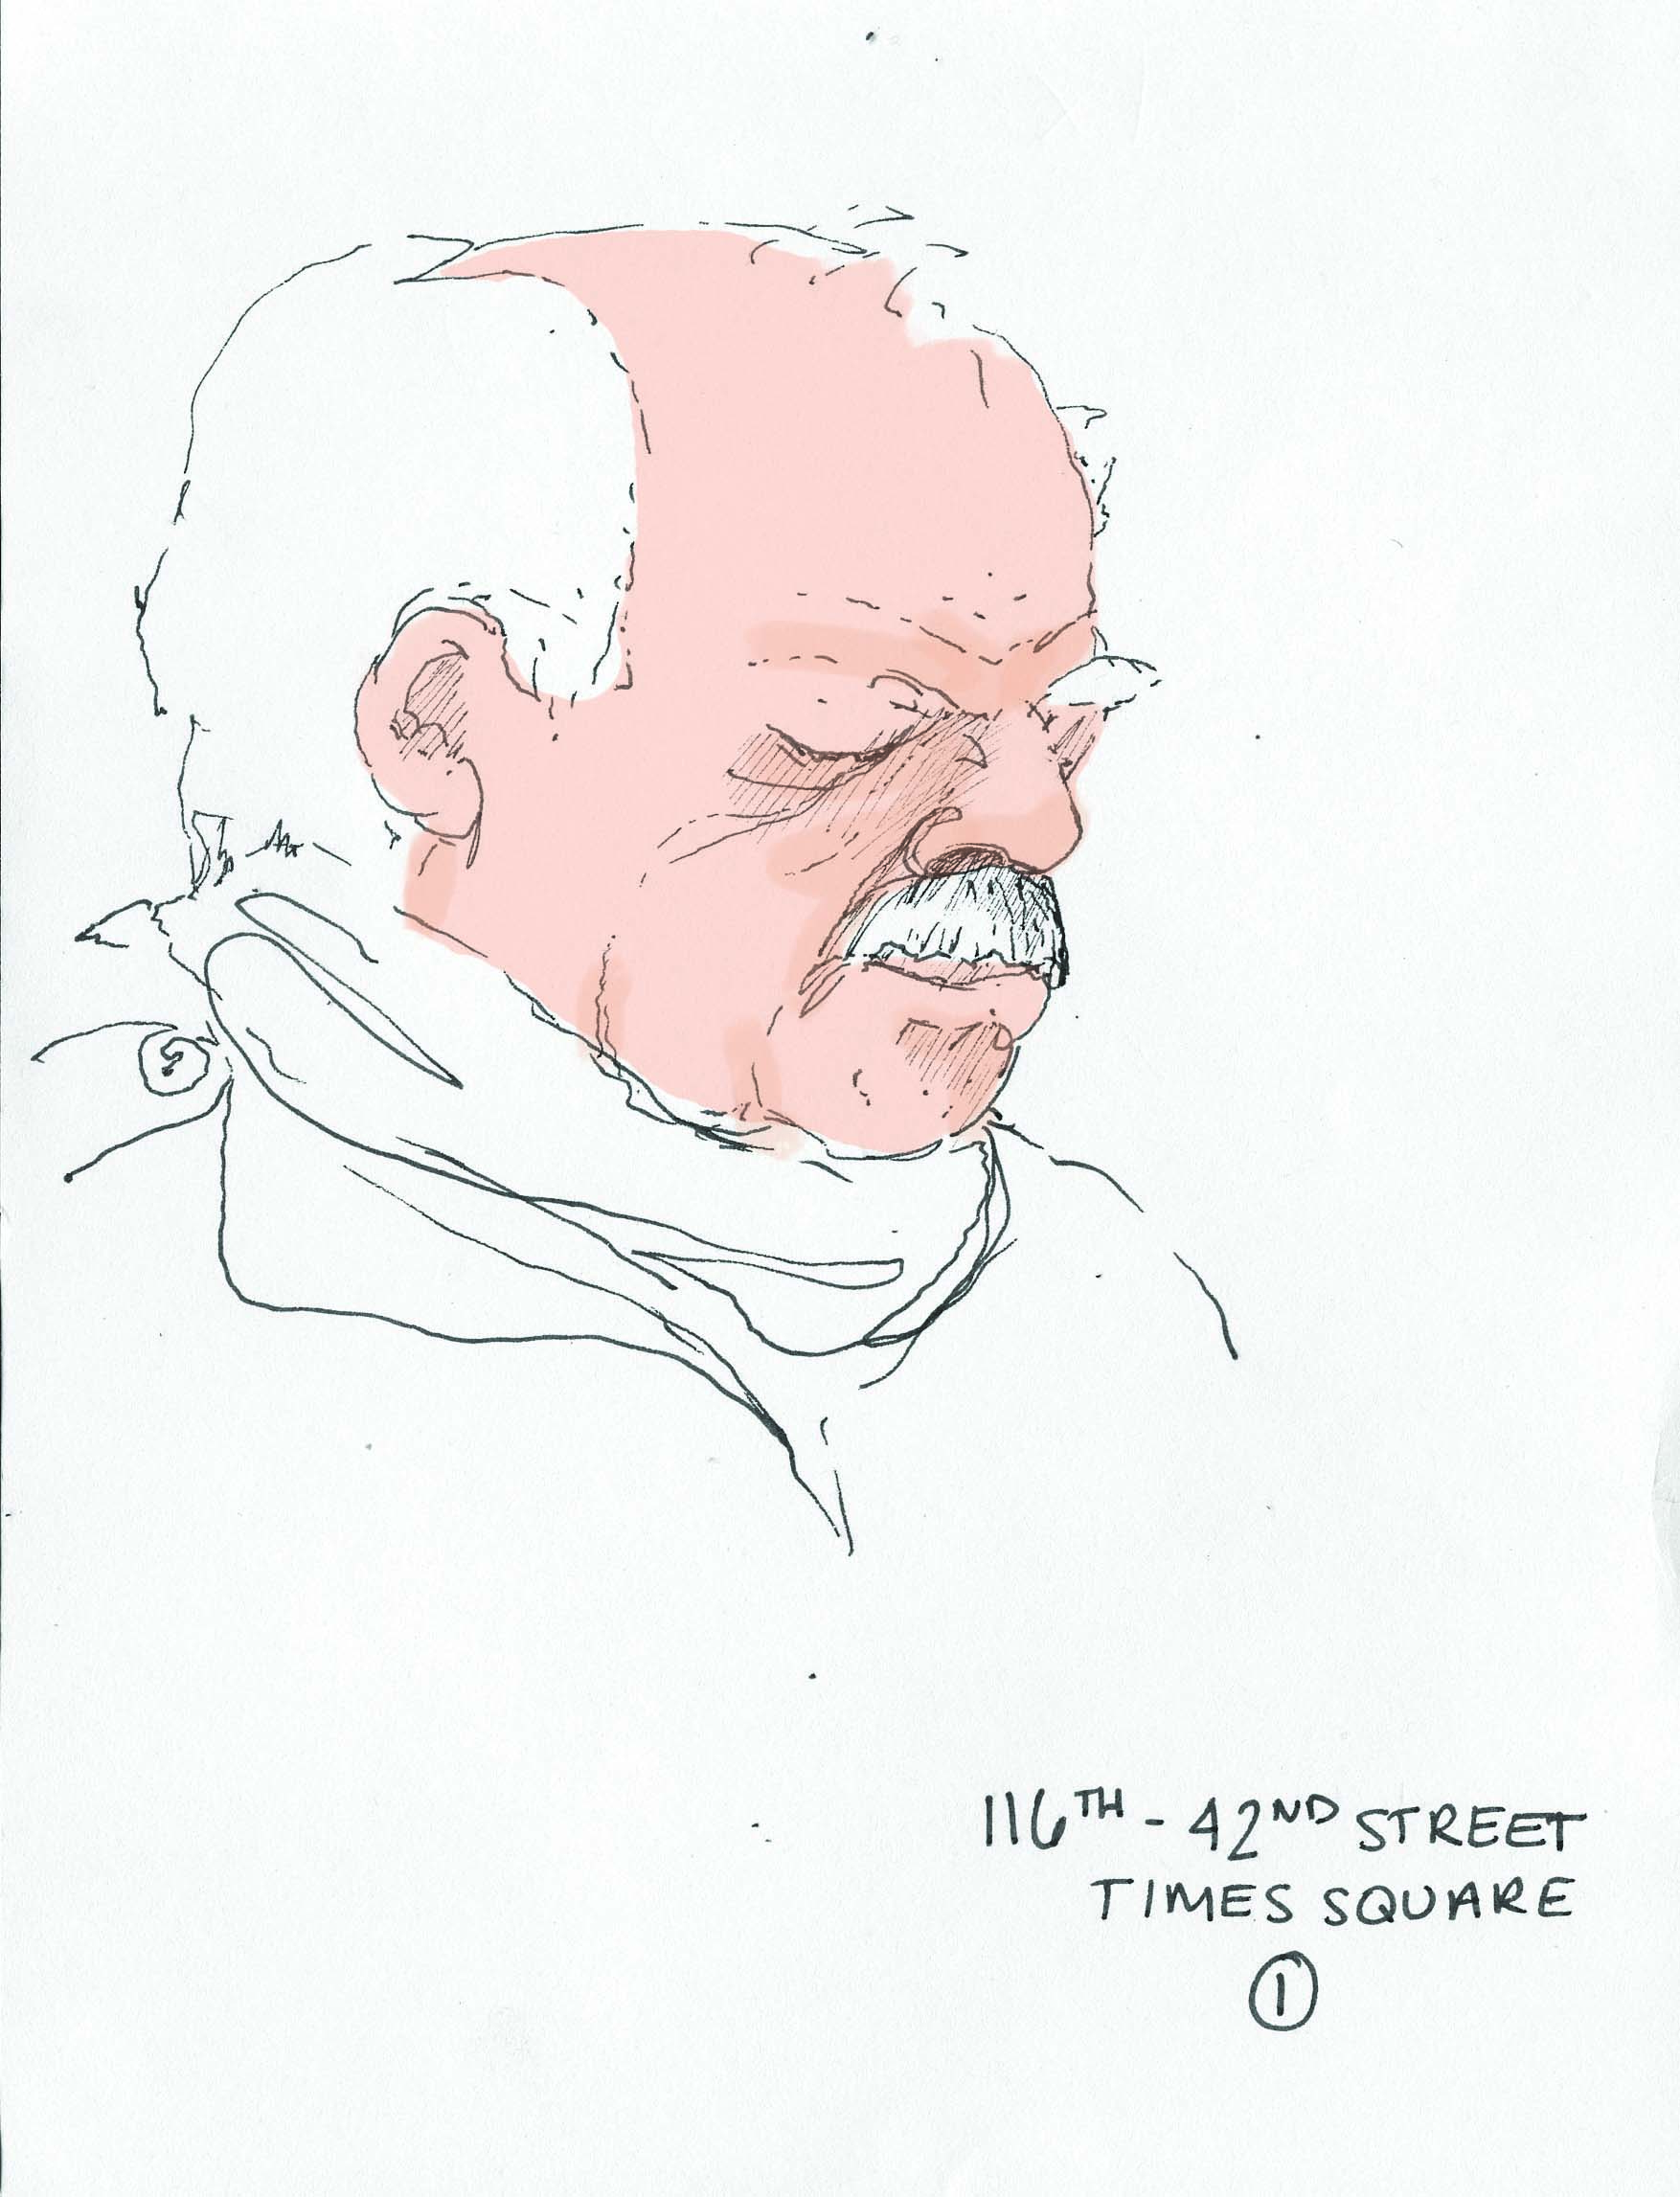 116TH - 42ND STREET
TIMES SQUARE
1